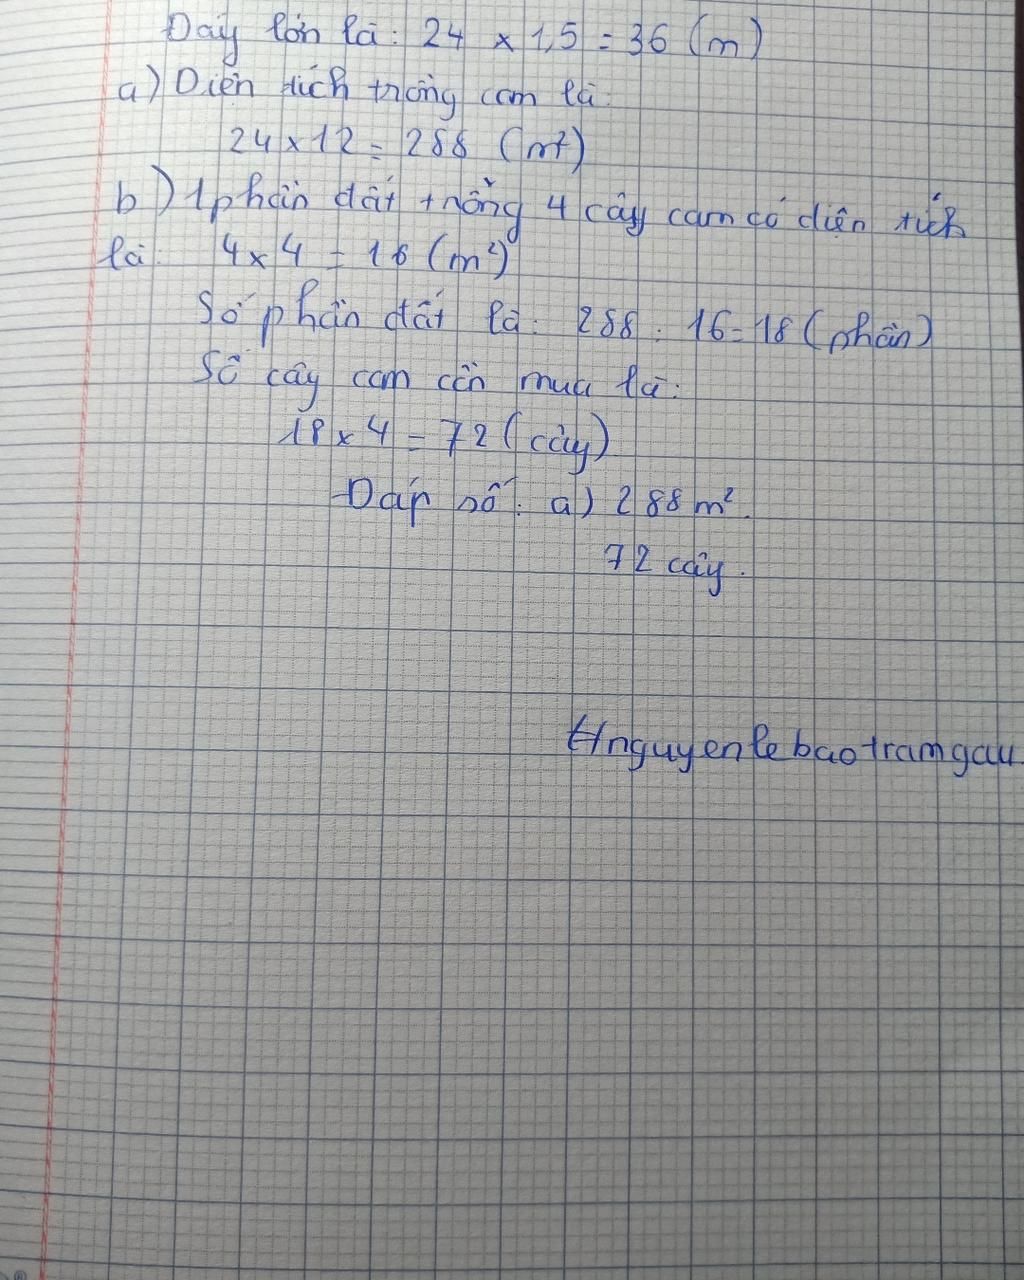 Đáy lớn là: 24 × 1,5 = 36 (m)
a) Diện tích trồng cam là:
24 × 12 = 288 (m²)
b) 1 phần đất trồng 4 cây cam có diện tích
là: 4 × 4 = 16 (m²)
Số phần đất là: 288 : 16 = 18 (phần)
Số cây cam cần mua là:
18 × 4 = 72 (cây)
Đáp số: a) 288 m².
72 cây.
nguyenlebaotramgau